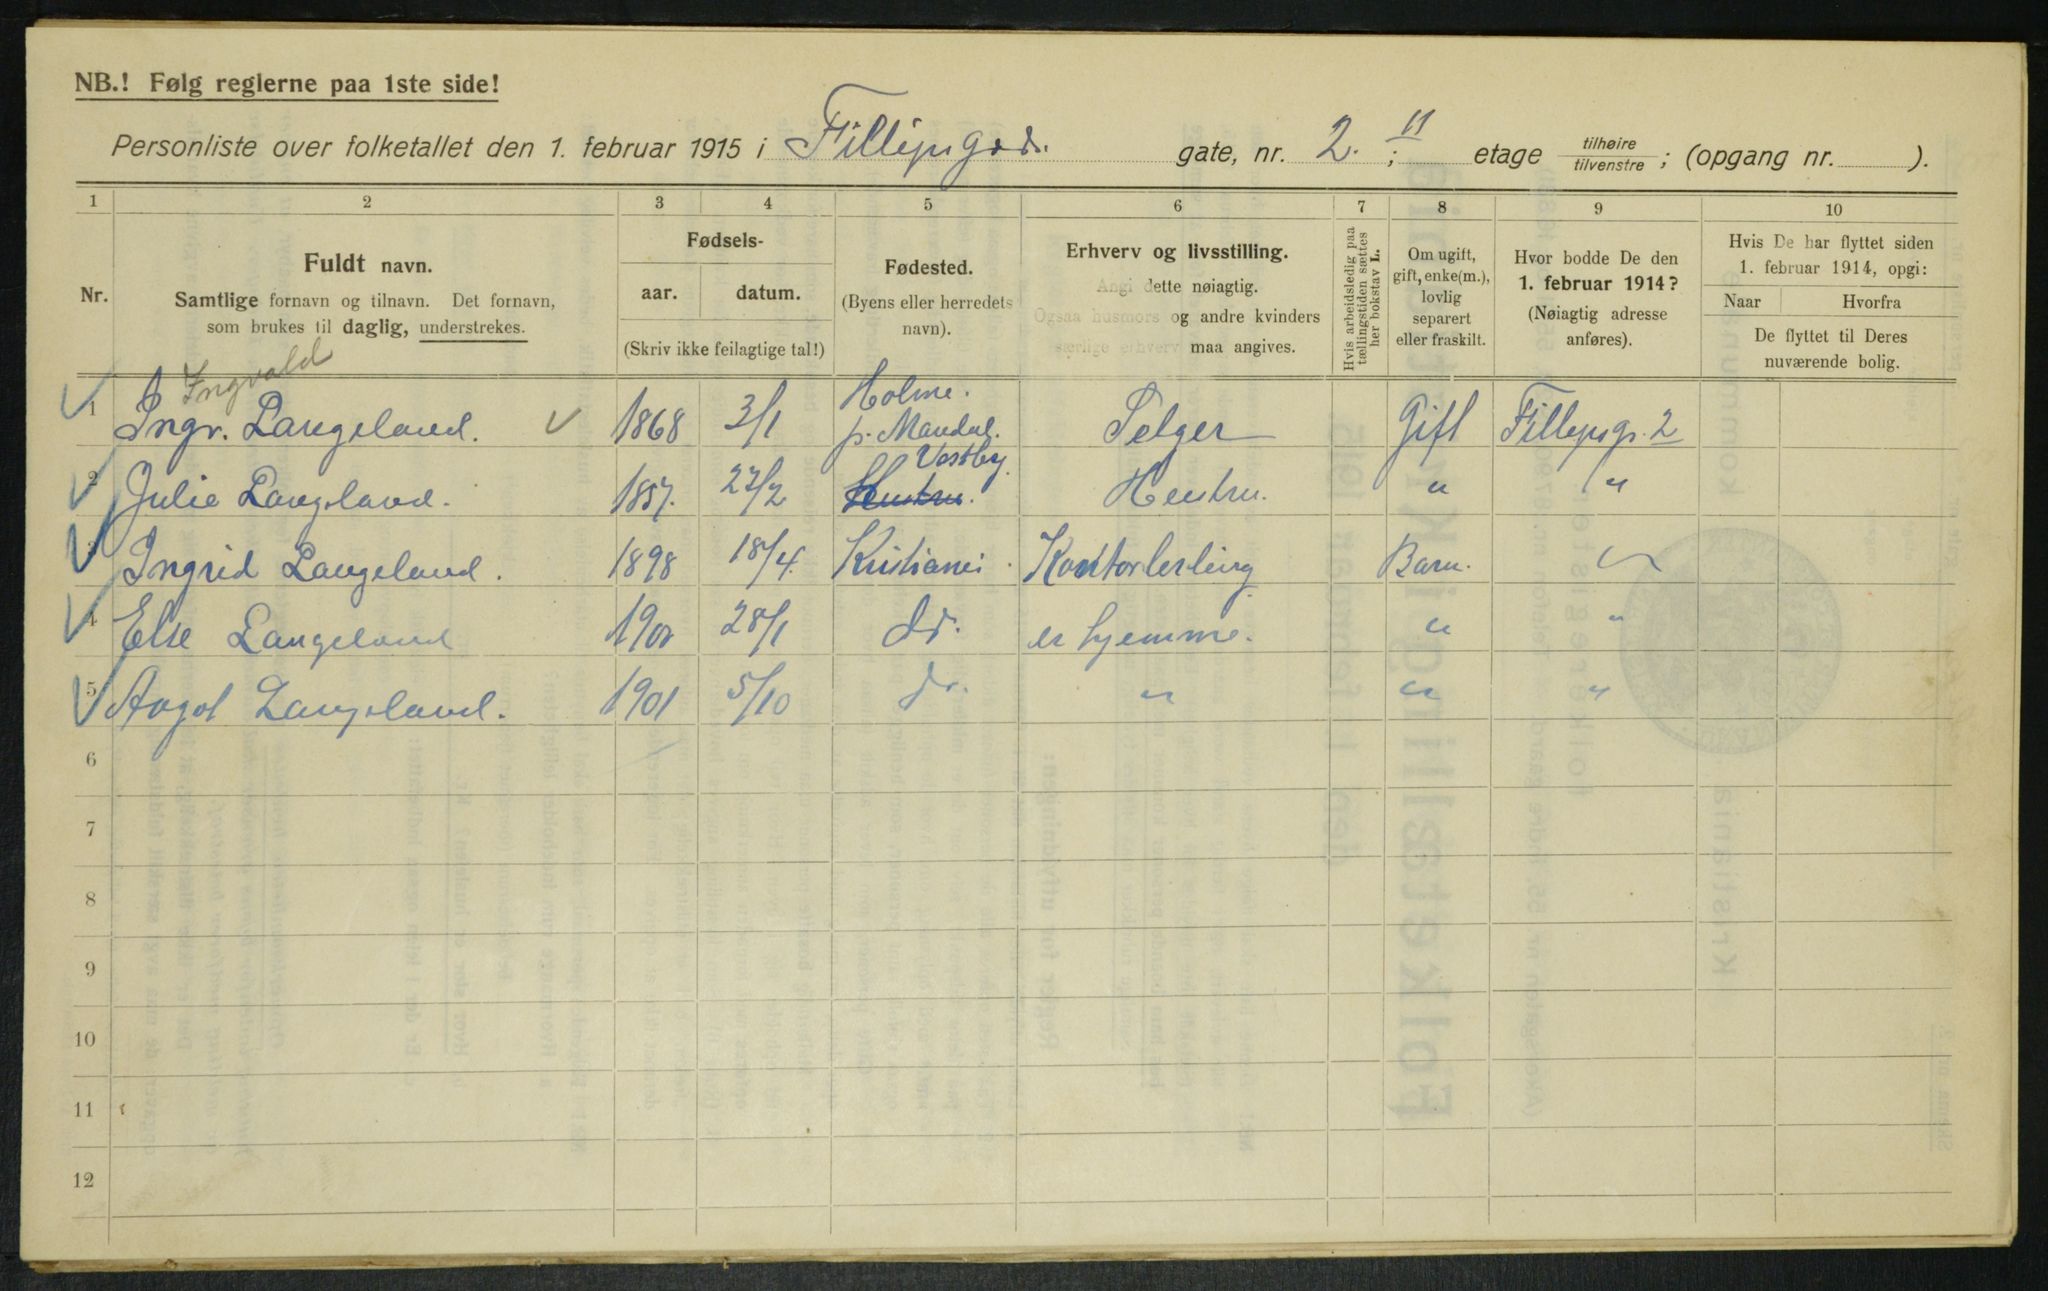 NB.! Følg reglerne paa 1ste side!
Personliste over folketallet den 1. februar 1915 i Fillipsgade. gate, nr. 2. ; 11 etage tilhøire tilvenstre ; (opgang nr. ).
1 2 3 4 5 6 7 8 9 10
Nr.
Fuldt navn.
Samtlige fornavn og tilnavn. Det fornavn,
som brukes til daglig, understrekes.
Fødsels-
aar. datum.
(Skriv ikke feilagtige tal!)
Fødested.
(Byens eller herredets
navn).
Erhverv og livsstilling.
Angi dette nøiagtig.
Ogsaa husmors og andre kvinders
særlige erhverv maa angives.
Hvis arbeidsledig paa
tællingstiden sættes
her bokstav L.
Om ugift,
gift, enke(m.),
lovlig
separert
eller fraskilt.
Hvor bodde De den
1. februar 1914?
(Nøiagtig adresse
anføres).
Hvis De har flyttet siden
1. februar 1914, opgi:
Naar Hvorfra
De flyttet til Deres
nuværende bolig.
Ingvald
1 Ingv. Langeland. 1868 3/1 Holme. p. Mandal. Selger Gift Fillipsg. 2
2 Julie Langeland. 1857. 27/2 Hustru. Vestby. Hustru. " "
3 Ingrid Langeland. 1898 18/4. Kristiania. Kontorlerling Barn. "
4 Else Langeland 1900 28/1 do. er hjemme. " "
5 Aagot Langeland. 1901 5/10 do. " " "
6
7
8
9
10
11
12